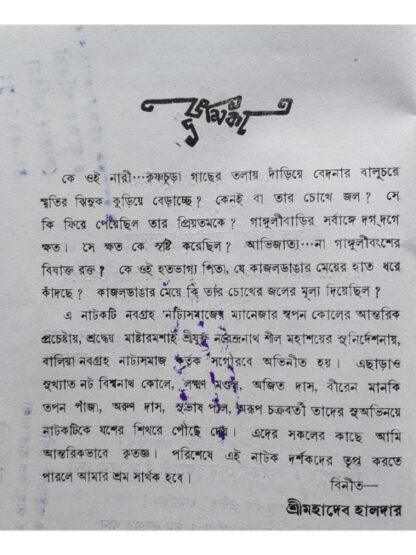 ভূমিকা
কে ওই নারী···কৃষ্ণচূড়া গাছের তলায় দাঁড়িয়ে বেদনার বালুচরে
স্মৃতির ঝিনুক কুড়িয়ে বেড়াচ্ছে? কেনই বা তার চোখে জল? সে
কি ফিরে পেয়েছিল তার প্রিয়তমকে? গাঙ্গুলীবাড়ির সর্বাঙ্গে দগদগে
ক্ষত। সে ক্ষত কে সৃষ্টি করেছিল? আভিজাত্য···না গাঙ্গুলীবংশের
বিষাক্ত রক্ত? কে ওই হতভাগ্য পিতা, যে কাজলডাঙার মেয়ের হাত ধরে
কাঁদছে? কাজলডাঙার মেয়ে কি তার চোখের জলের মূল্য দিয়েছিল?
এ নাটকটি নবগ্রহ নাট্যসমাজের ম্যানেজার স্বপন কোলের আন্তরিক
প্রচেষ্টায়, শ্রদ্ধেয় মাষ্টারমশাই শ্রীযুক্ত নরেন্দ্রনাথ শীল মহাশয়ের সুনির্দেশনায়,
বালিয়া নবগ্রহ নাট্যসমাজ কর্তৃক সগৌরবে অভিনীত হয়। এছাড়াও
সুখ্যাত নট বিশ্বনাথ কোলে, লক্ষ্মণ মণ্ডল, অজিত দাস, বীরেন মানকি
তপন পাঁজা, অরুণ দাস, সুভাষ পাল, অরূপ চক্রবর্তী তাদের সুঅভিনয়ে
নাটকটিকে যশের শিখরে পৌঁছে দেয়। এদের সকলের কাছে আমি
আন্তরিকভাবে কৃতজ্ঞ। পরিশেষে এই নাটক দর্শকদের তৃপ্ত করতে
পারলে আমার শ্রম সার্থক হবে।
বিনীত—
শ্রীমহাদেব হালদার